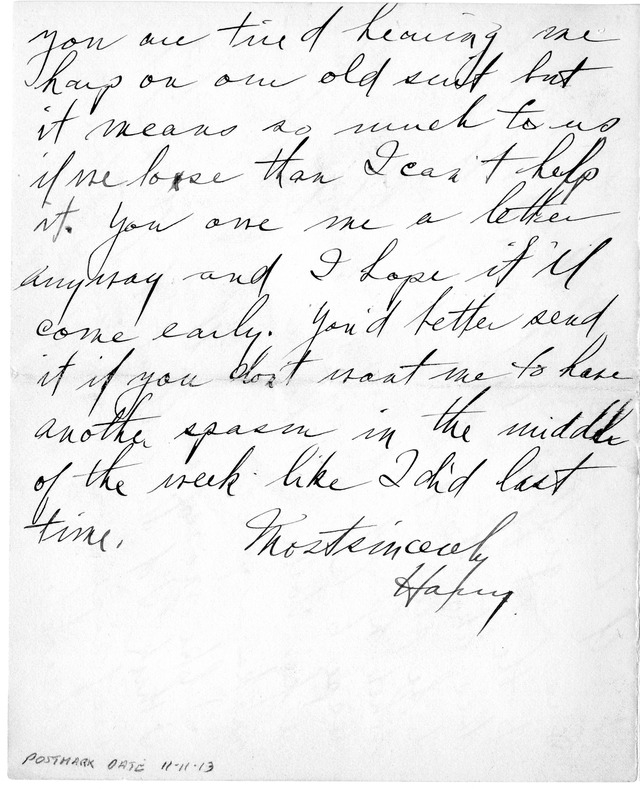 you are tired hearing me
harp on our old suit but
it means so much to us
if we loose than I can't help
it. You owe me a letter
anyway and I hope it'll
come early. You'd better send
it if you don't want me to have
another spasm in the middle
of the week like I did last
time.
Most sincerely
Harry
POSTMARK DATE 11-11-13